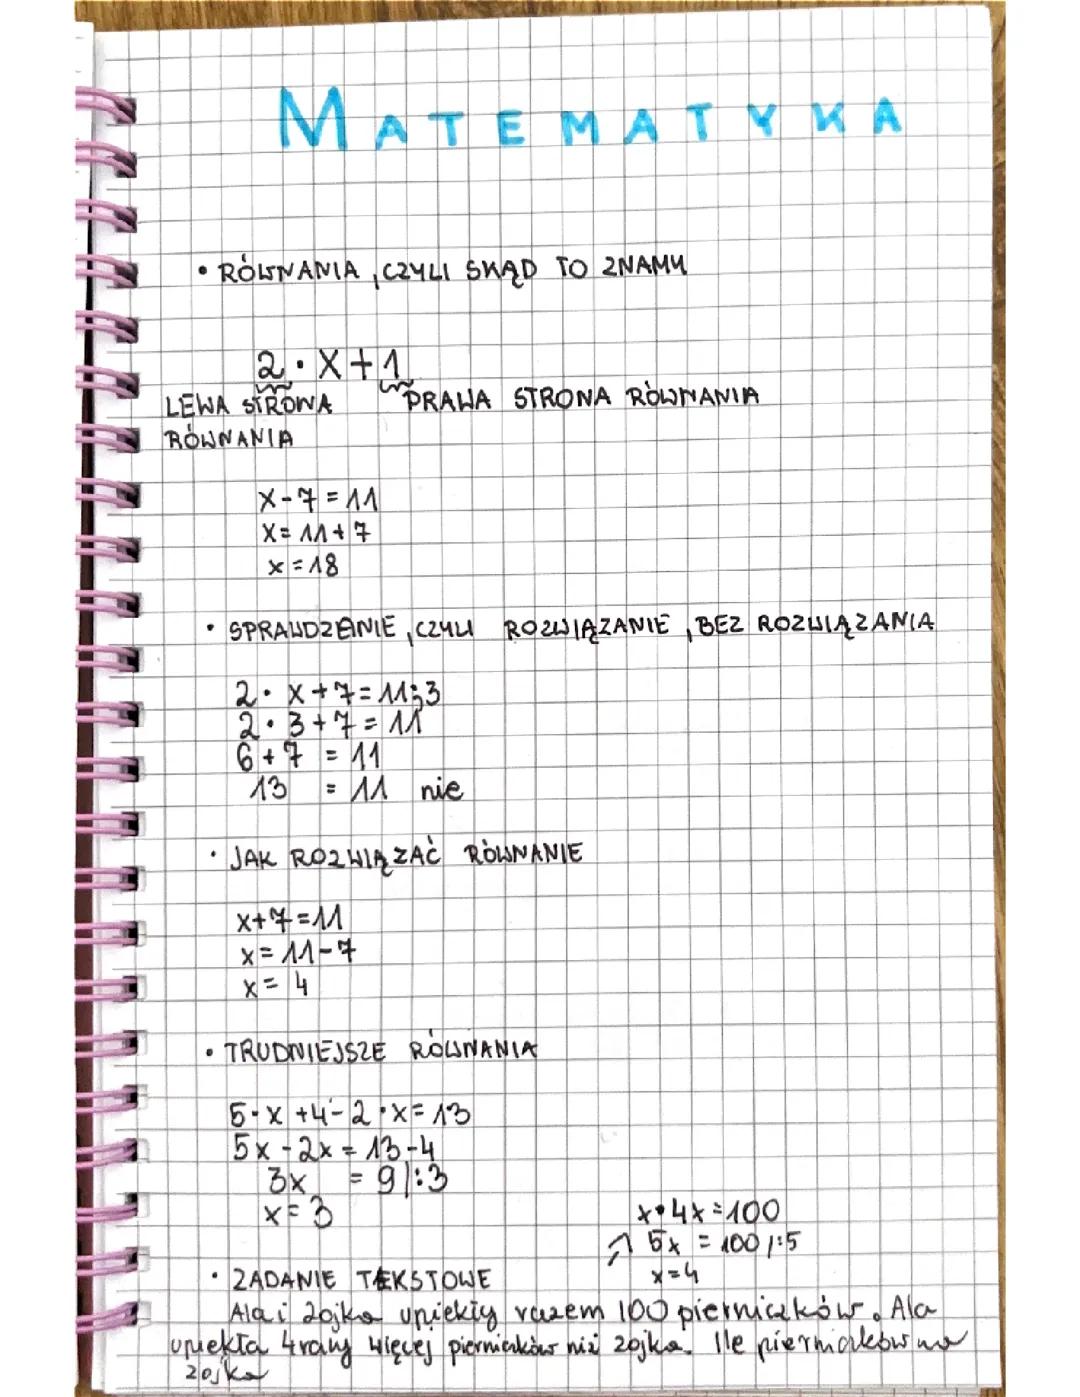 MATEMATYKA
• RÓWNANIA, CZYLI SKĄD TO ZNAMY
2 · x + 1
LEWA STRONA PRAWA STRONA RÓWNANIA
RÓWNANIA
x - 7 = 11
x = 11 + 7
x = 18
• SPRAWDZENIE, CZYLI ROZWIĄZANIE, BEZ ROZWIĄZANIA
2 · x + 7 = 11;3
2 · 3 + 7 = 11
6 + 7 = 11
13 = 11 nie
• JAK ROZWIĄZAĆ RÓWNANIE
x + 7 = 11
x = 11 - 7
x = 4
• TRUDNIEJSZE RÓWNANIA
5 · x + 4 - 2 · x = 13
5x - 2x = 13 - 4
3x = 9 |:3
x = 3
x + 4x = 100
↗ 5x = 100 /:5
x = 4
• ZADANIE TEKSTOWE
Ala i Zojka upiekły razem 100 pierniczków. Ala
upiekła 4 razy więcej pierników niż Zojka. Ile pierniaków ma
Zojka